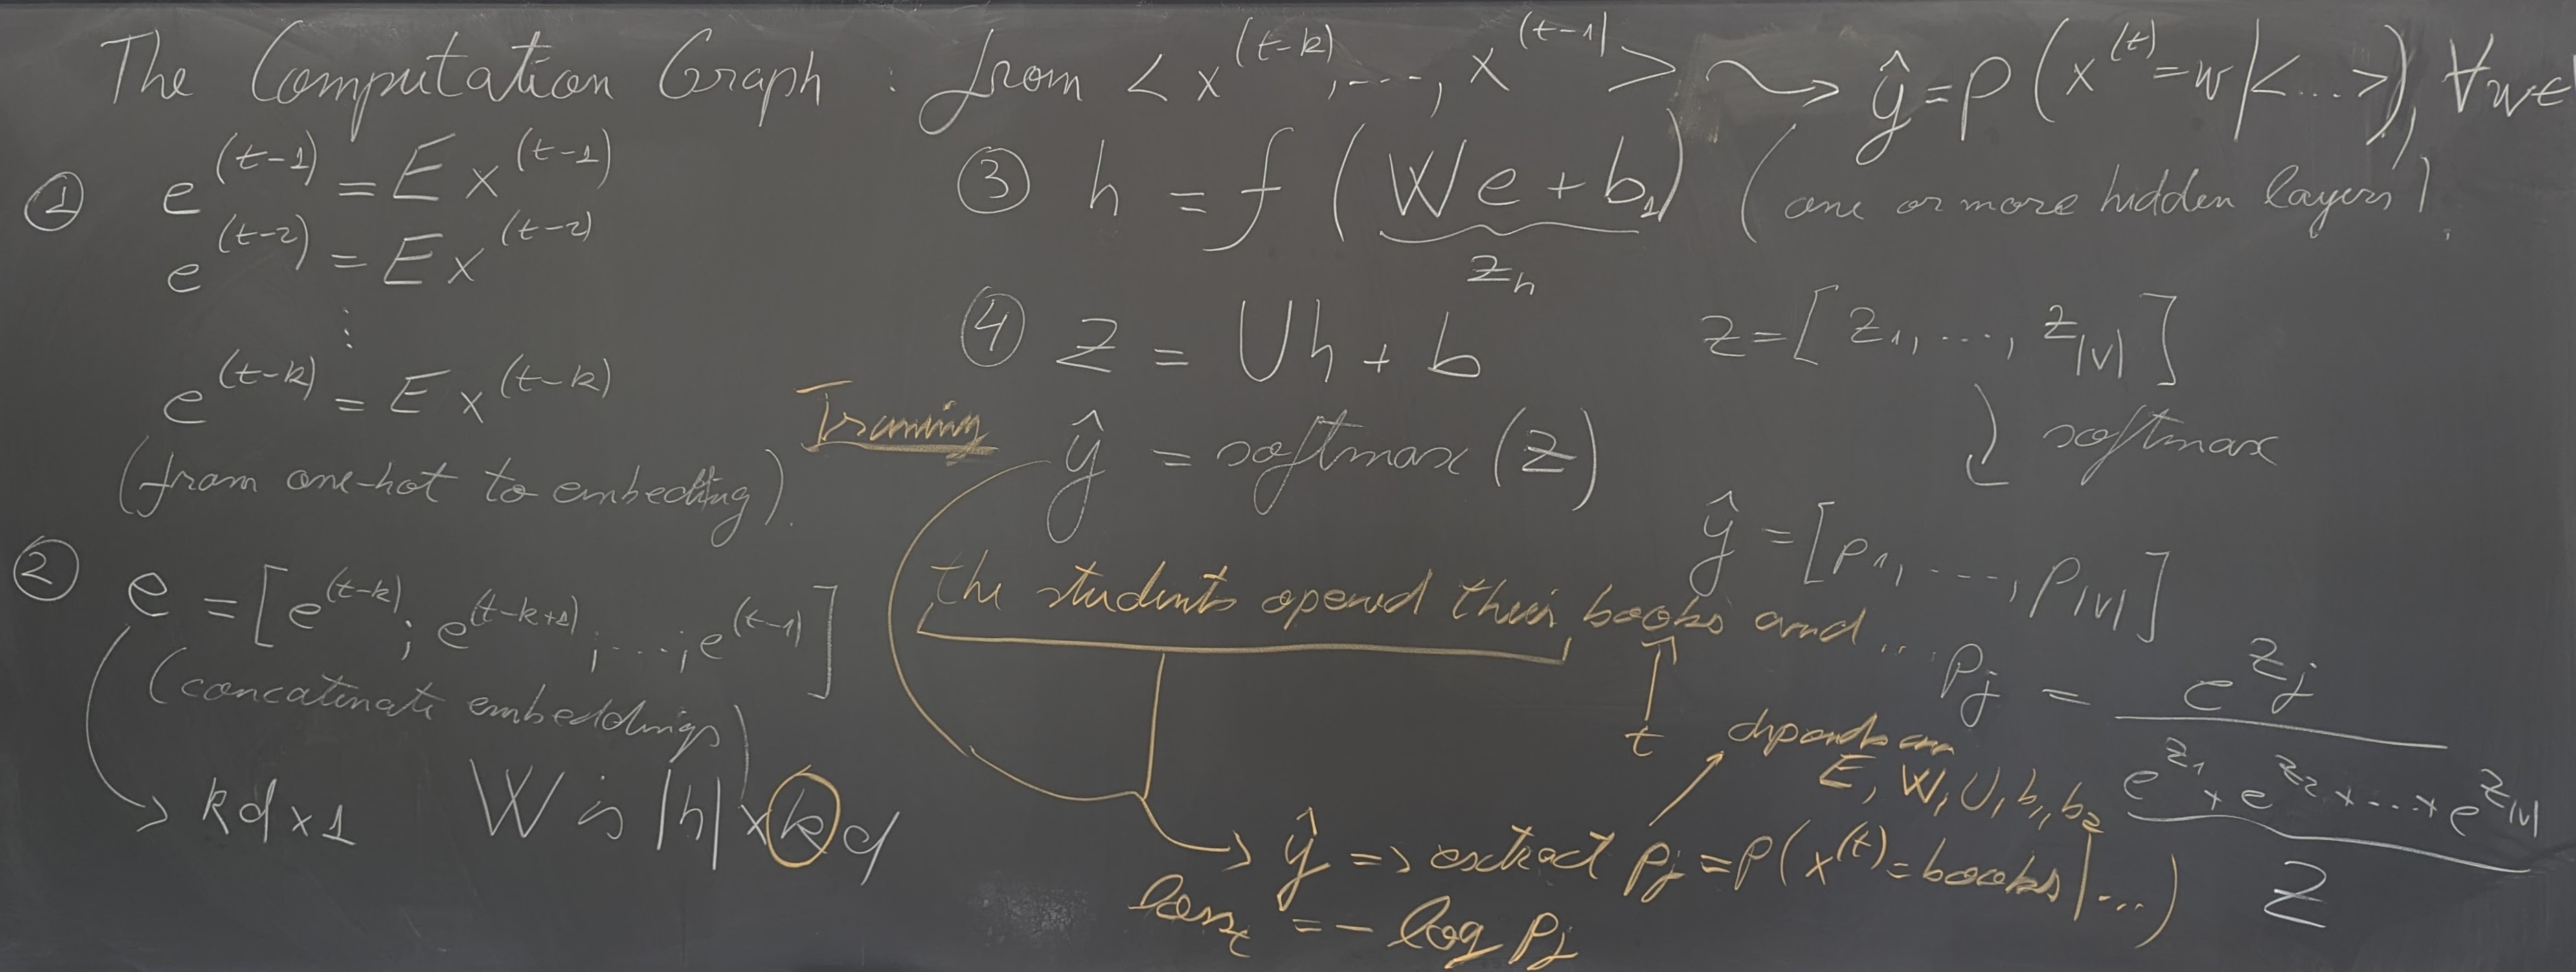 The Computation Graph : from < x^(t-k), ..., x^(t-1) > ⇝ ŷ = P( x^(t) = w | <...> ), ∀w∈
① e^(t-1) = E x^(t-1)
e^(t-2) = E x^(t-2)
⋮
e^(t-k) = E x^(t-k)
(from one-hot to embedding).
② e = [ e^(t-k) ; e^(t-k+1) ; ... ; e^(t-1) ]
(concatenate embeddings)
→ kd × 1 W is |h| × kd
③ h = f ( We + b_1 ) (one or more hidden layers).
z_h
④ z = Uh + b
ŷ = softmax (z)
z = [ z_1, ..., z_|V| ]
softmax
ŷ = [ p_1, ..., p_|V| ]
p_j = e^(z_j) / ( e^(z_1) + e^(z_2) + ... + e^(z_|V|) )
Z
Training
the students opened their books and ...
t
depends on
E, W, U, b_1, b_2
→ ŷ => extract p_j = P( x^(t) = books | ... )
loss_t = - log p_j